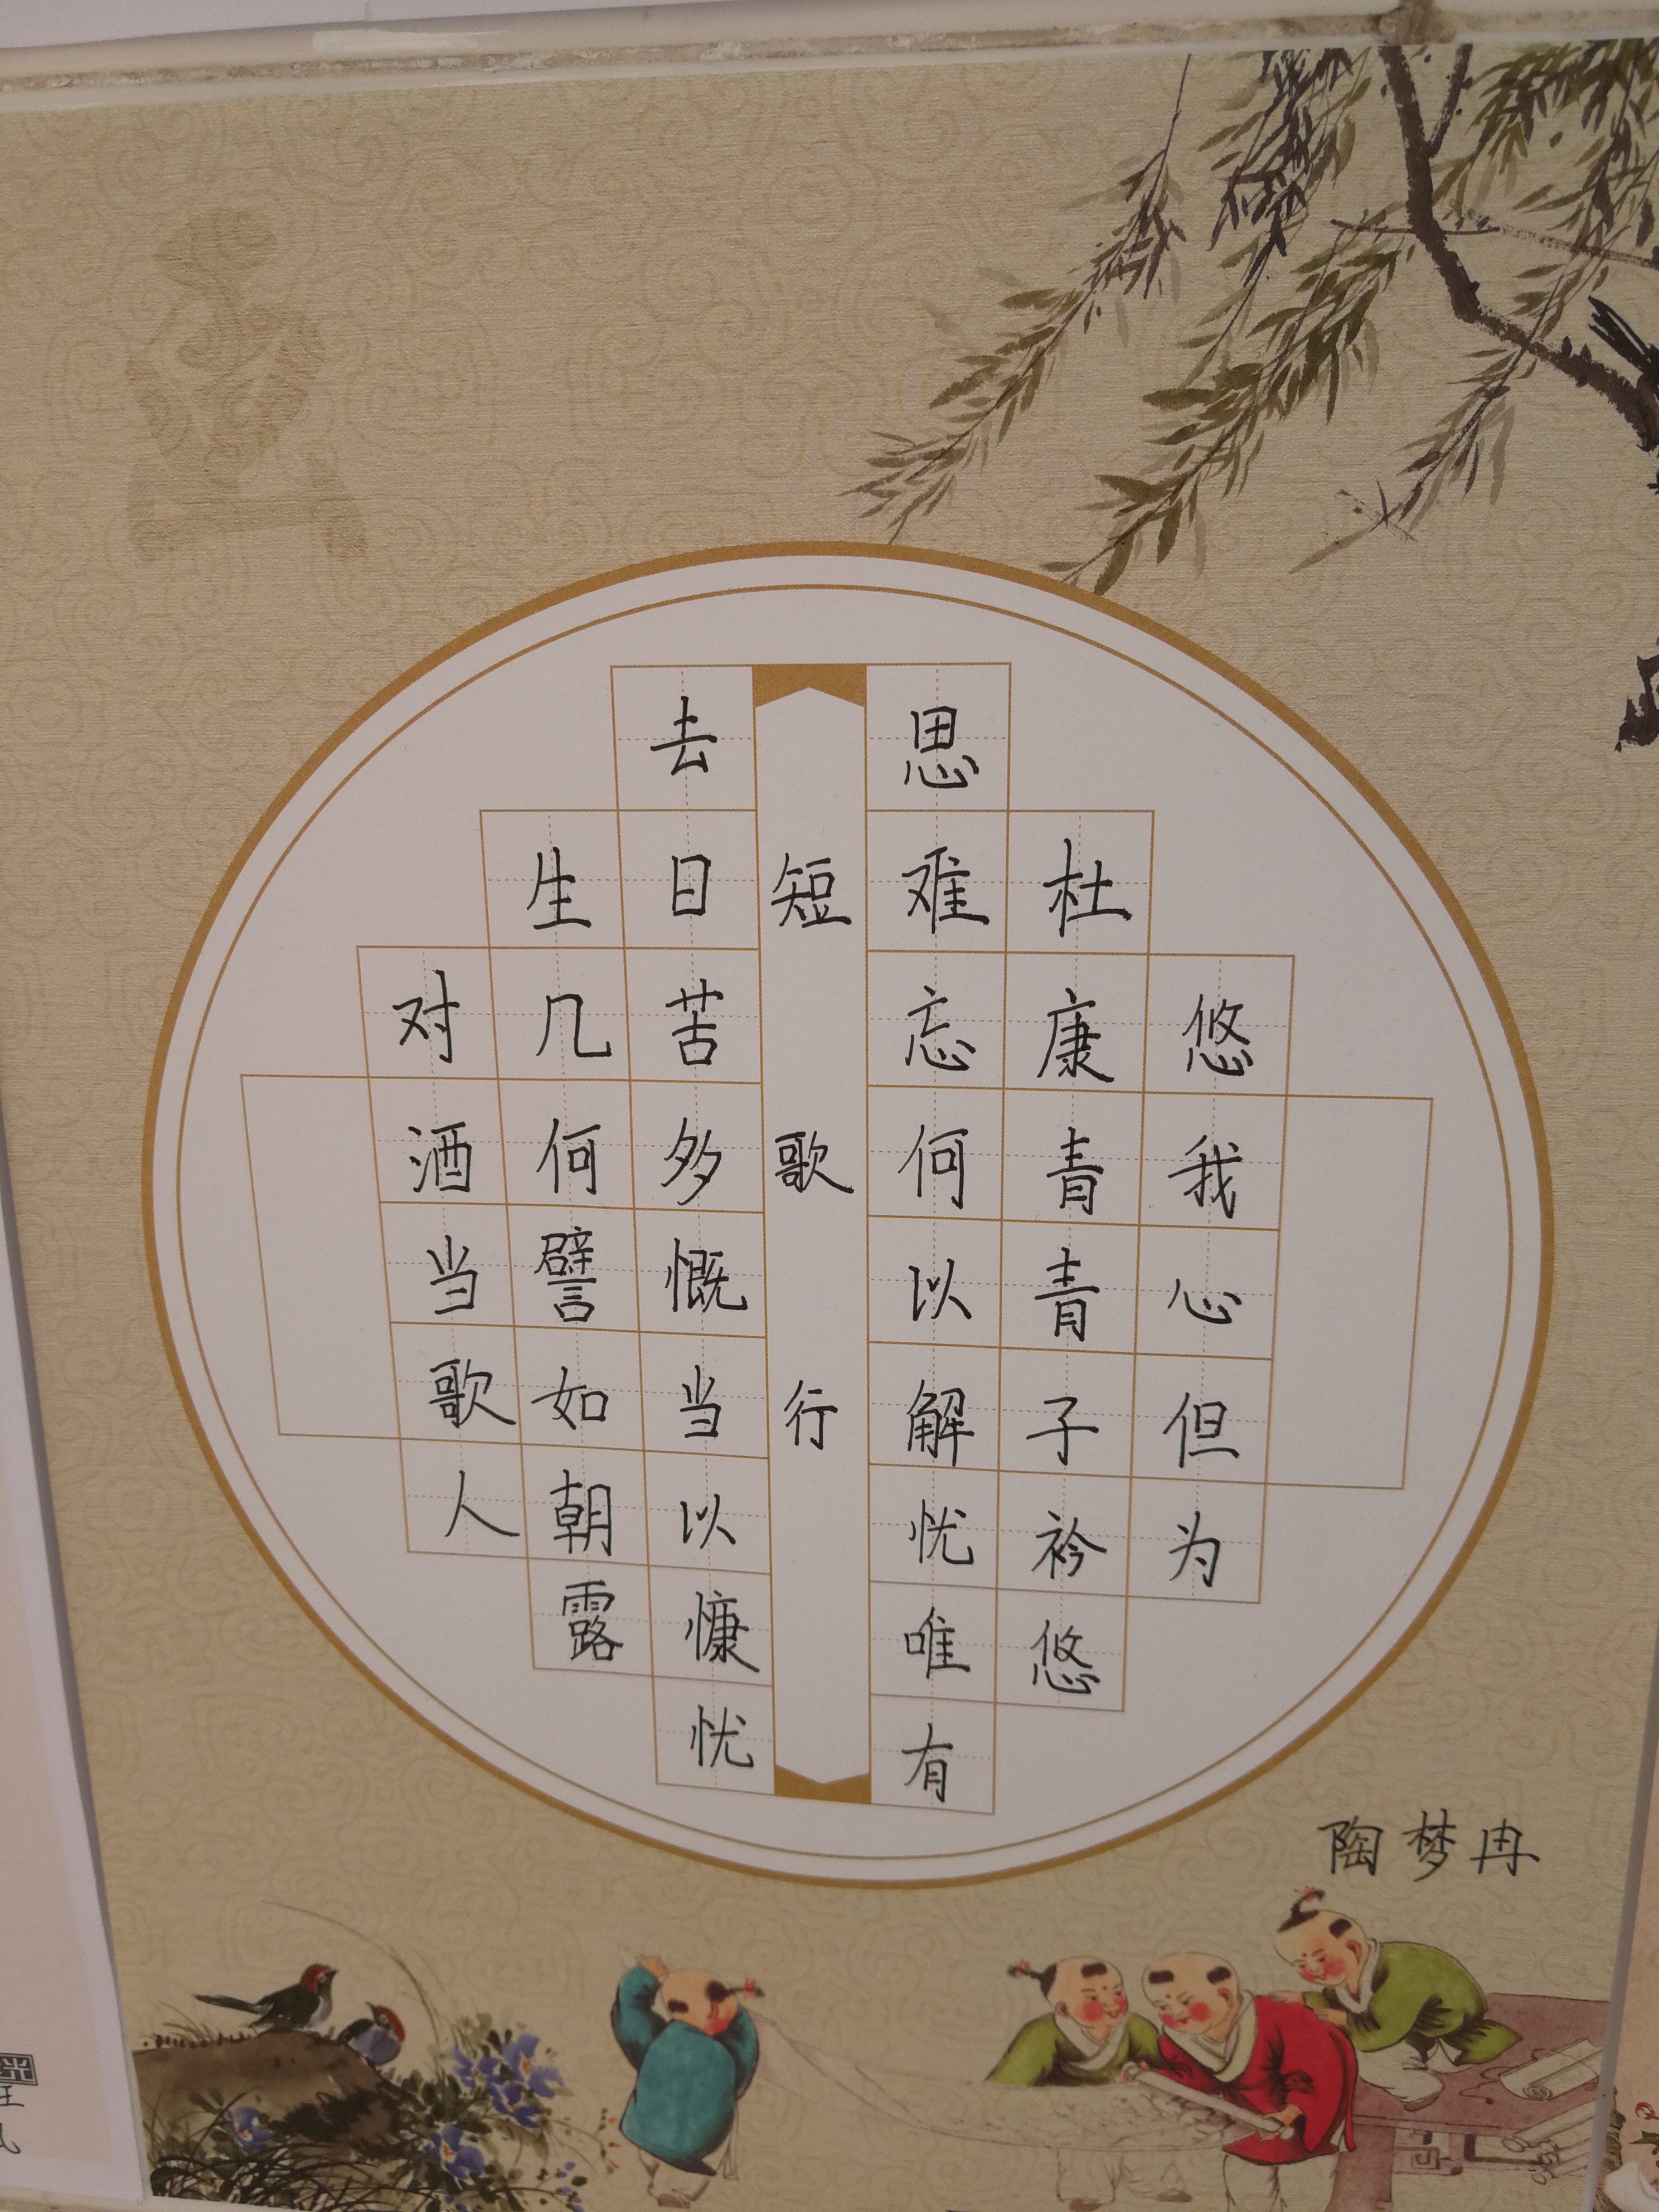 短歌行
对酒当歌人
生几何譬如朝露
去日苦多慨当以慷忧
思难忘何以解忧唯有
杜康青青子衿悠
悠我心但为
陶梦冉